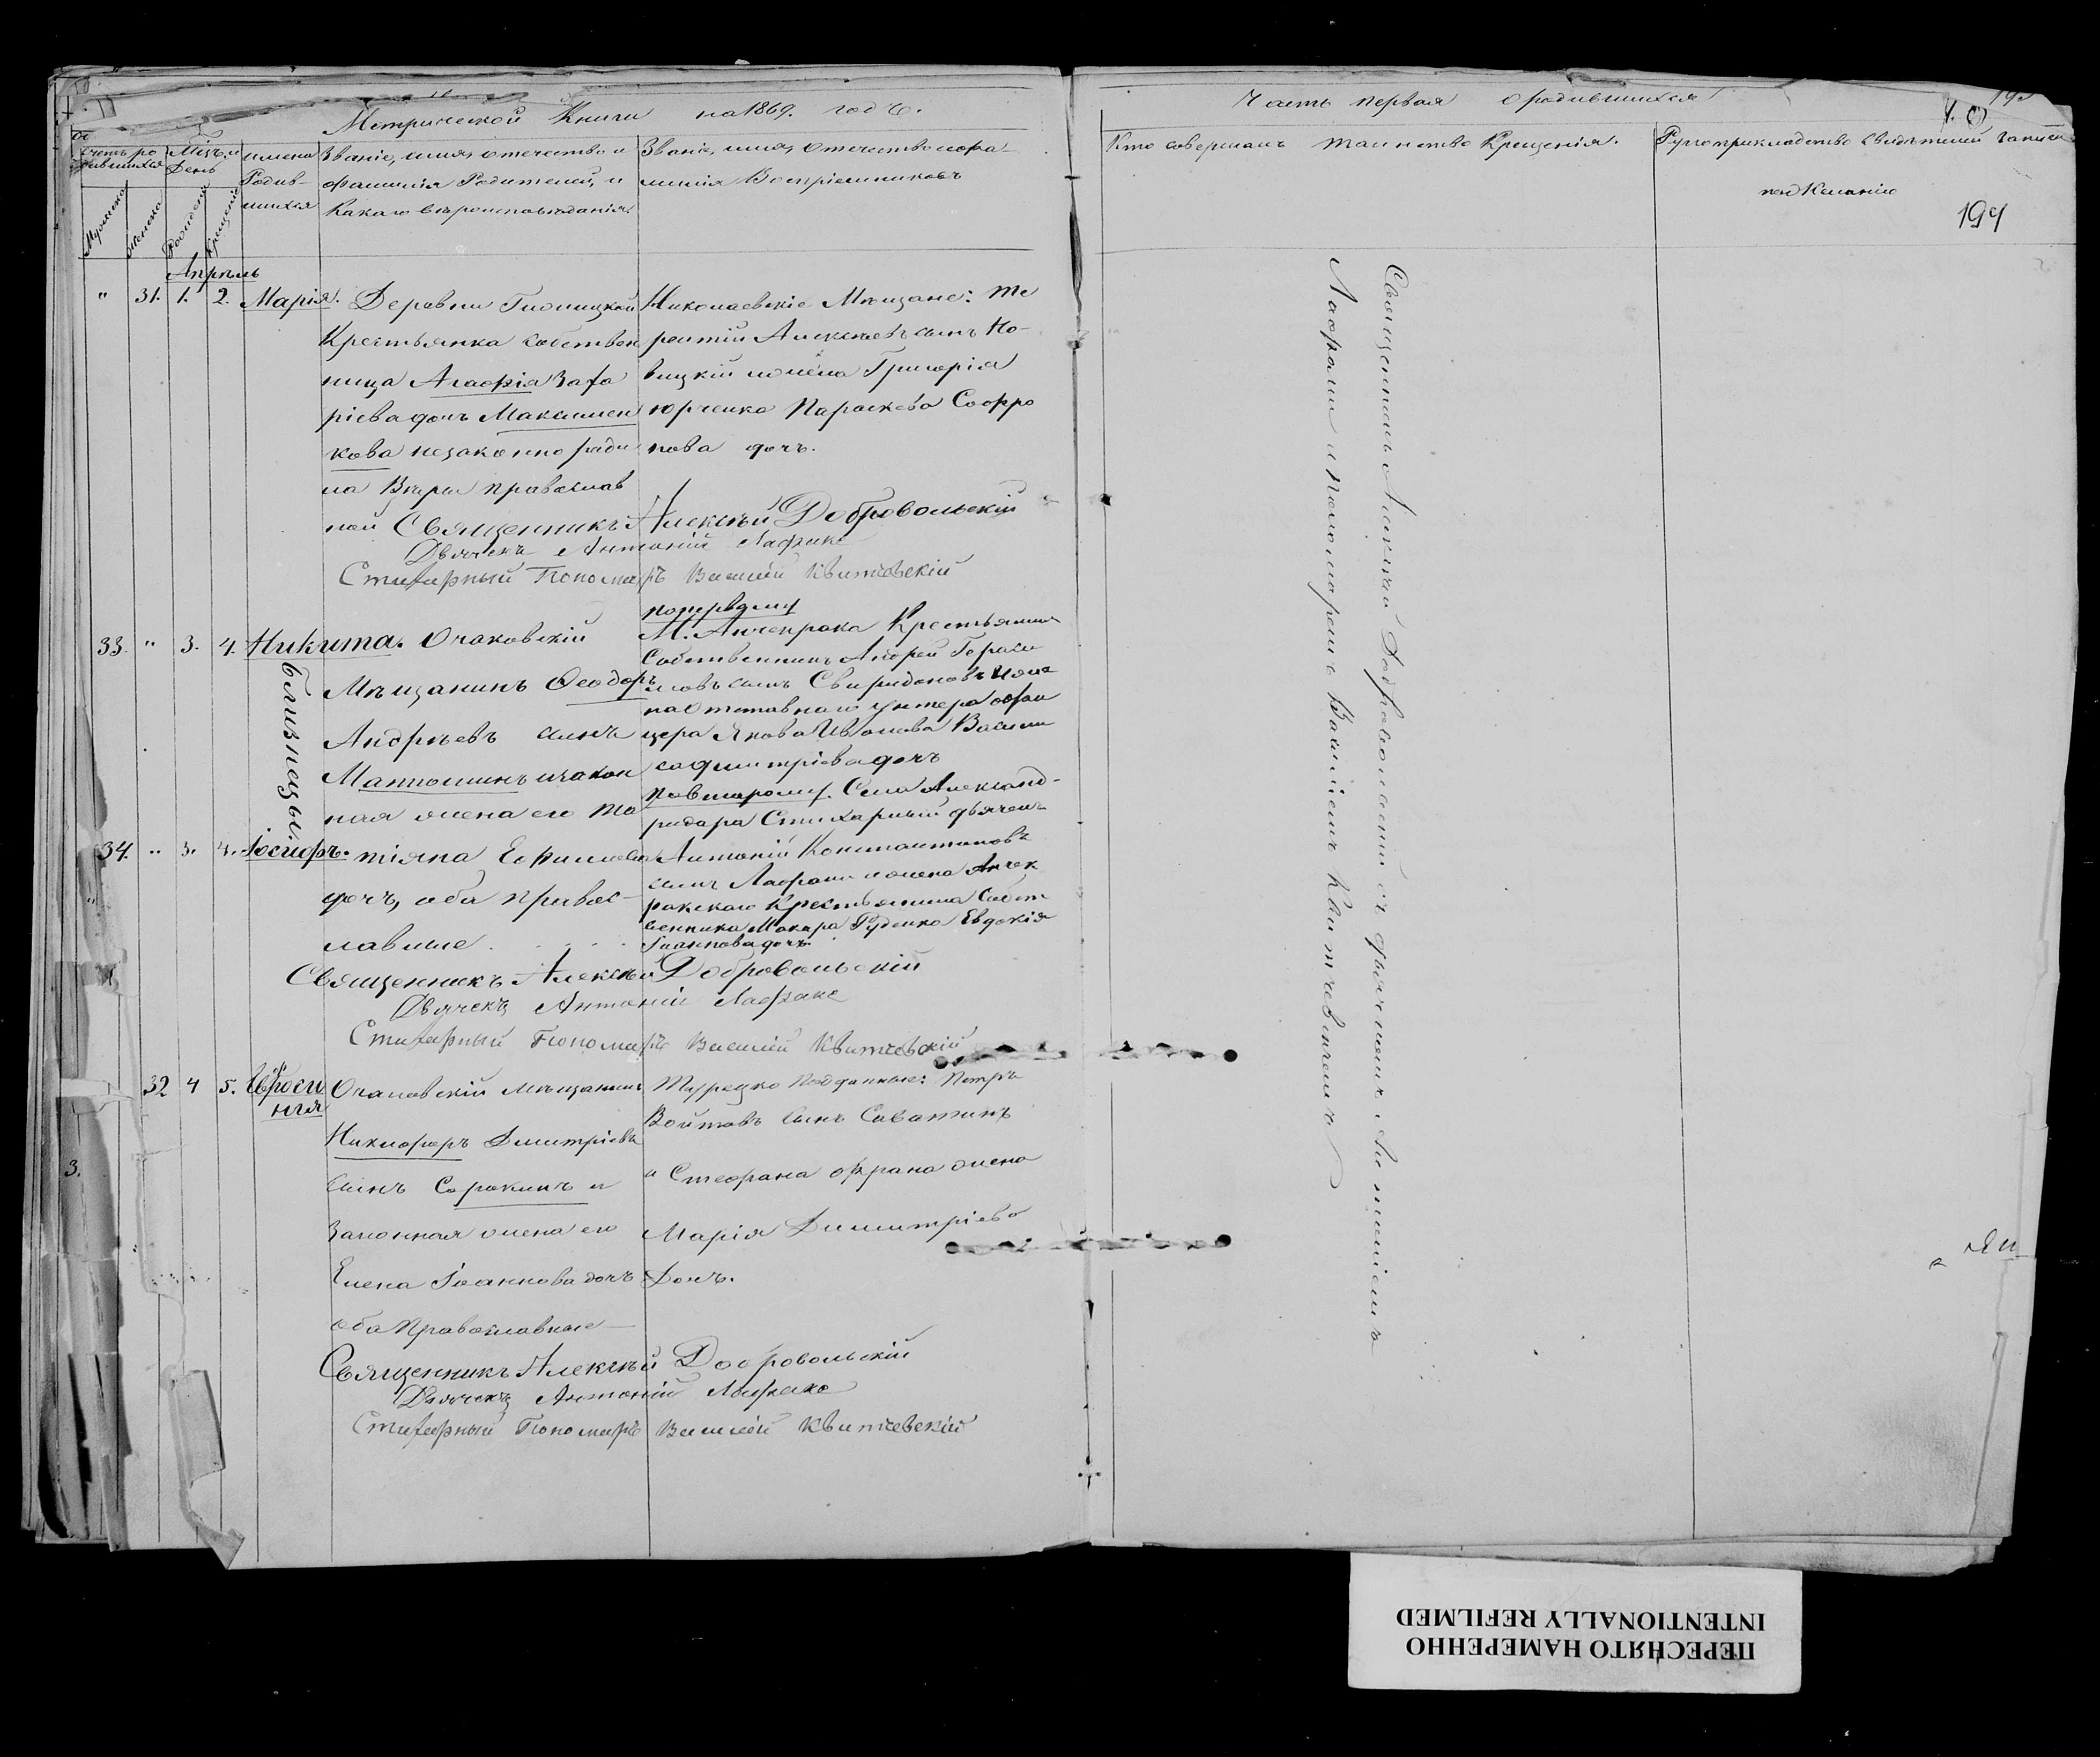 Метрической Книги на 1869. годъ.
Часть первая о родившихся
194
Счетъ родившихся
Мужеска
Женска
Мѣс. и День
Рожденія
Крещенія
имена Родившихся
Званіе, имя, отечество и
фамилія Родителей, и
Какаго вѣроисповѣданія
Званіе, имя, отечество и фамилія Воспріемниковъ
Кто совершалъ таинство Крещенія.
Рукоприкладство свидѣтелей записи
по Желанію
Апрѣль
" 31. 1. 2. Марія.
Деревни
Крестьянка собствен
ница Агафія Заха
ріева дочь Максимен
кова незаконно роди
ла Вѣры православ
ной
Николаевскіе Мѣщане: Те
рентій Алексѣевъ сынъ Но-
вицкій и жена Григорія
Юрченко Параскева Софро
нова дочь.
Священникъ Алексѣй Добровольскій
Дьячекъ Антоній Лафаки
Стихарный Пономарь Василій Квитчевскій
33. " 3. 4. Никита.
близнецы
34. " 3. 4. Іосифъ.
Очаковскій
Мѣщанинъ Ѳеодоръ
Андрѣевъ сынъ
и закон
ная жена его Та
тіяна Ефимова
дочь, оба правос-
лавные
по первому
М. Анчекрака Крестьянинъ
Собственникъ Андрей Гераси
мовъ сынъ Свиридоновъ и жена
отставнаго унтеръ офи
цера Якова Иванова Васили
са Дмитріева дочь
по второму. Села Александ-
ридара Стихарный дьячекъ
Антоній Константиновъ
сынъ Лафаки и жена Анчек
ракскаго Крестьянина Собст
венника Макара Руденко Евдокія
Іоаннова дочь.
Священникъ Алексѣй Добровольскій
Дьячекъ Антоній Лафаки
Стихарный Пономарь Василій Квитчевскій
32 4 5.
Очаковскій мѣщанинъ
Никифоръ Димитріевъ
сынъ Сорокинъ и
Законная жена его
Елена Іоаннова дочь
оба Православные
Турецко подданные: Петръ
Войтовъ сынъ Саватинъ
и Стефана Франа жена
Марія Димитріева
Дочь.
Священникъ Алексѣй Добровольскій
Дьячекъ Антоній Лафаки
Стихарный Пономарь Василій Квитчевскій
3.
Священникъ Алексѣй Добровольскій съ дьячкомъ Антоніемъ
Лафаки и пономаремъ Василіемъ Квитчевскимъ
ПЕРЕСНЯТО НАМЕРЕННО
INTENTIONALLY REFILMED